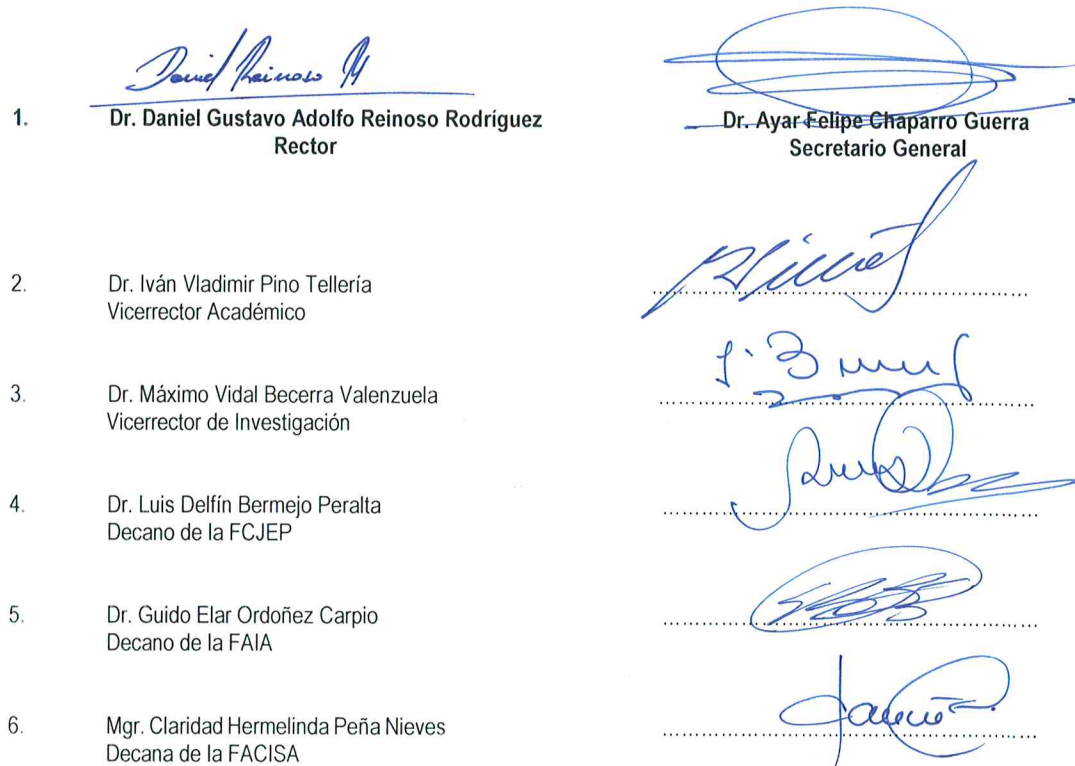 Daniel Reinoso R
1. Dr. Daniel Gustavo Adolfo Reinoso Rodríguez
Rector
Dr. Ayar Felipe Chaparro Guerra
Secretario General
2. Dr. Iván Vladimir Pino Tellería
Vicerrector Académico
3. Dr. Máximo Vidal Becerra Valenzuela
Vicerrector de Investigación
4. Dr. Luis Delfín Bermejo Peralta
Decano de la FCJEP
5. Dr. Guido Elar Ordoñez Carpio
Decano de la FAIA
6. Mgr. Claridad Hermelinda Peña Nieves
Decana de la FACISA